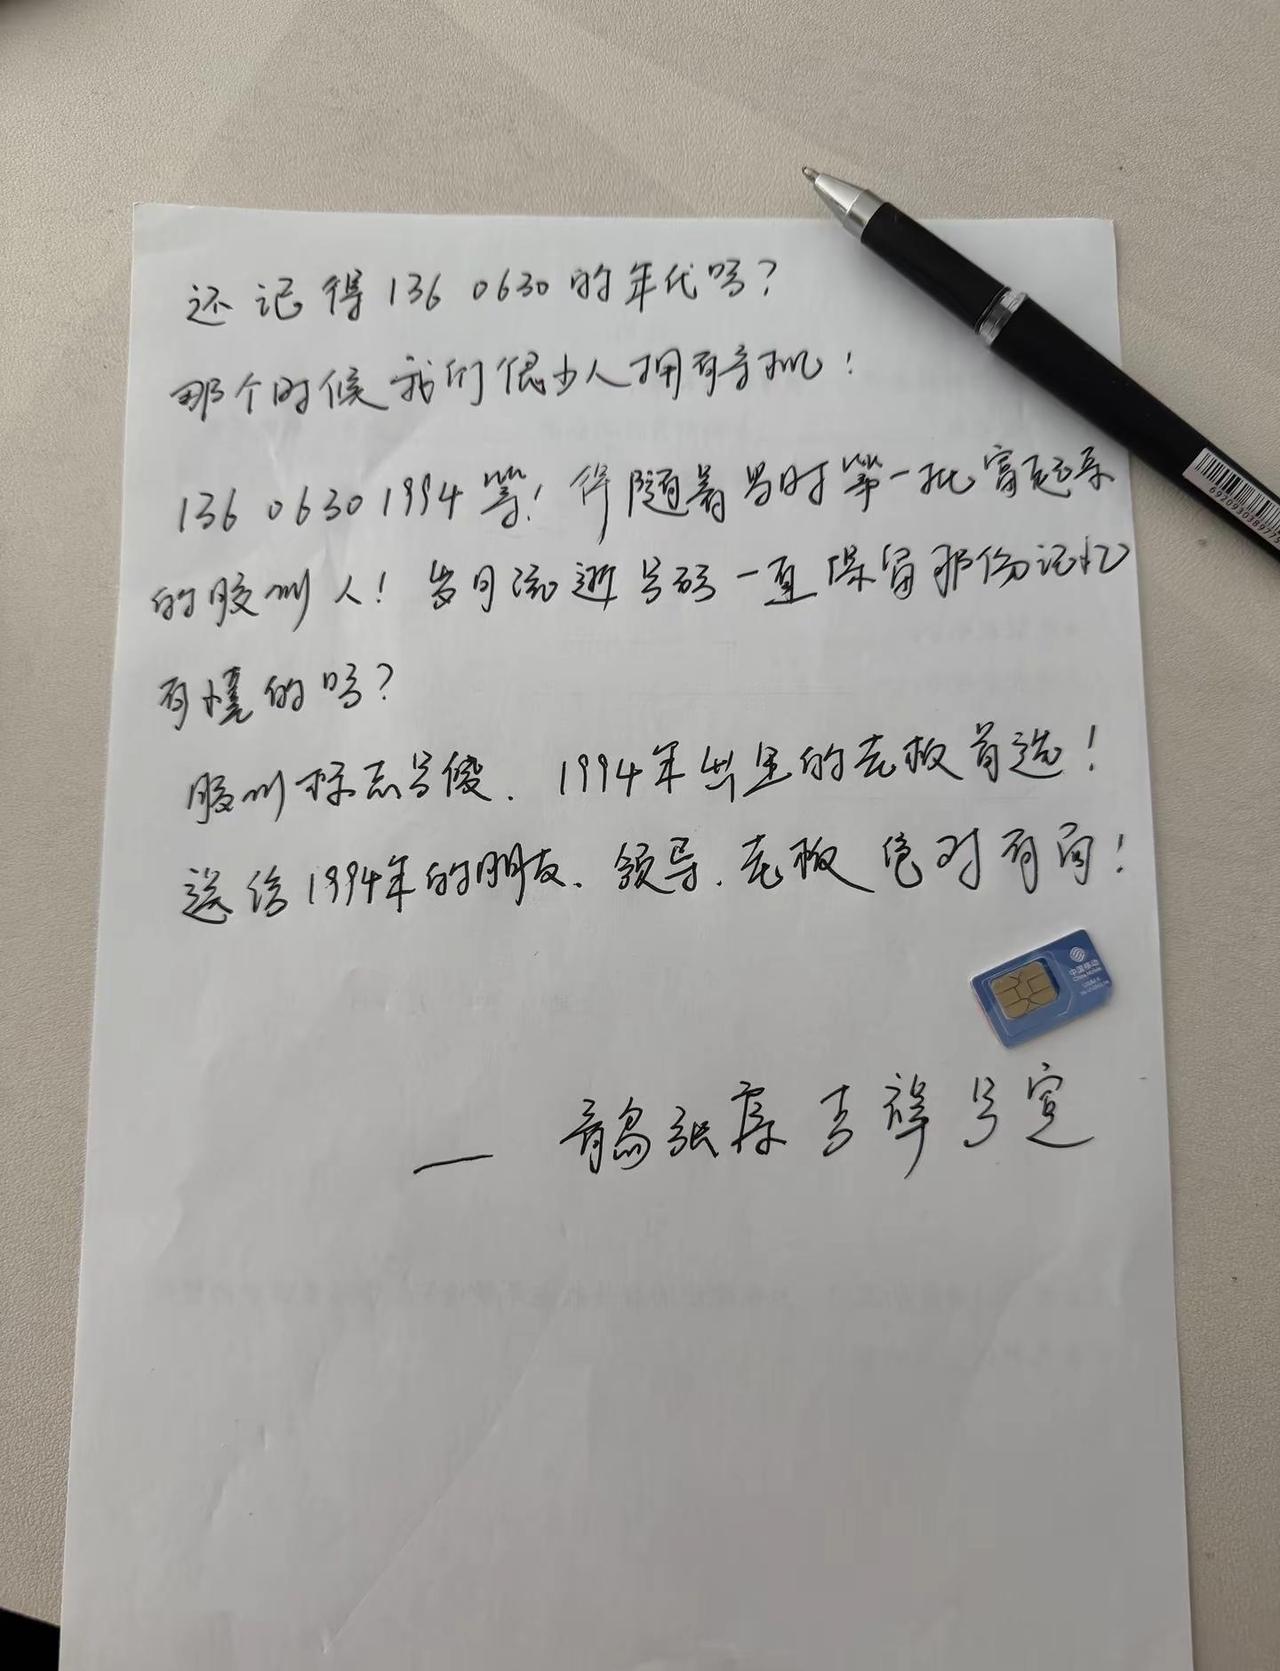 还记得136 0630的年代吗?
那个时候我们很少人拥有手机!
136 0630 1994 等! 伴随着当时第一批富起来
的胶州人! 岁月流逝号码一直保留那份记忆
有懂的吗?
胶州标志号段. 1994年出生的老板首选!
送给1994年的朋友. 领导. 老板 绝对有面!
中国移动
China Mobile
USIM卡
— 青岛张震吉祥号宽